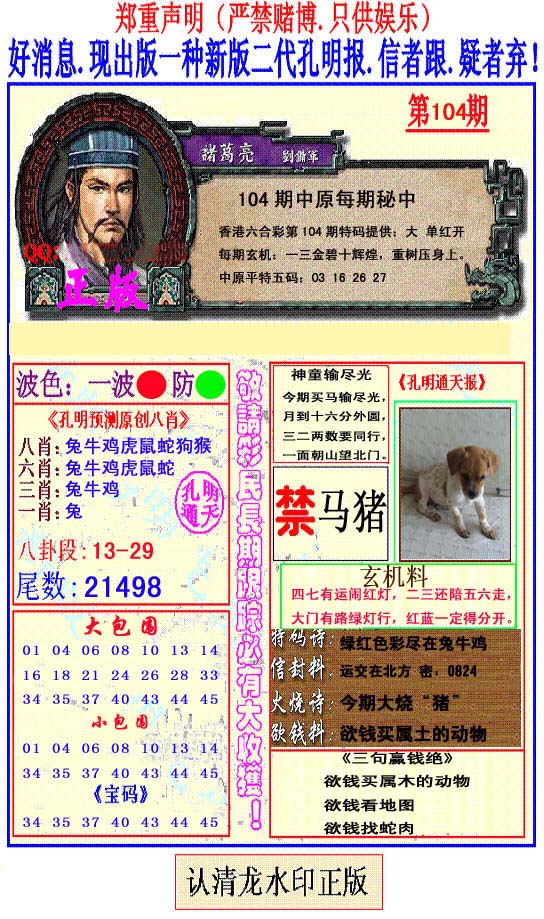 郑重声明（严禁赌博.只供娱乐）
好消息.现出版一种新版二代孔明报.信者跟.疑者弃!
第104期
諸葛亮 劉備軍
104 期中原每期秘中
香港六合彩第 104 期特码提供: 大 单红开
每期玄机: 一三金碧十辉煌，重树压身上。
中原平特五码: 03 16 26 27
QQ:
正版
波色: 一波 防
《孔明预测原创八肖》
八肖: 兔牛鸡虎鼠蛇狗猴
六肖: 兔牛鸡虎鼠蛇
三肖: 兔牛鸡
一肖: 兔
孔明
通天
八卦段: 13-29
尾数: 21498
敬請彩民長期跟踪必有大收獲！
神童输尽光
今期买马输尽光，
月到十六分外圆，
三二两数要同行，
一面朝山望北门。
《孔明通天报》
禁 马猪
玄机料
四七有运闹红灯，二三还陪五六走，
大门有路绿灯行，红蓝一定得分开。
特码诗: 绿红色彩尽在兔牛鸡
信封料: 运交在北方 密: 0824
火烧诗: 今期大烧“猪”
欲钱料: 欲钱买属土的动物
《三句赢钱绝》
欲钱买属木的动物
欲钱看地图
欲钱找蛇肉
大包围
01 04 06 08 10 13 14
16 18 21 24 26 28 33
34 35 37 40 43 44 45
小包围
01 04 06 08 10 13 14
34 35 37 40 43 44 45
《宝码》
34 35 37 40 43 44 45
认清龙水印正版